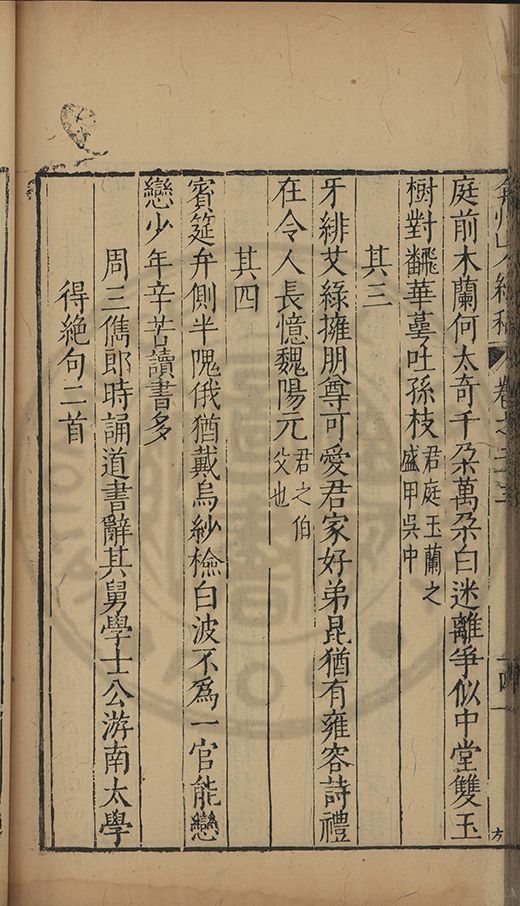 庭前木蘭何太奇千朶萬朶白迷離爭似中堂雙玉
樹對飜華萼吐孫枝君庭玉蘭之盛甲吳中
其三
牙緋艾綠擁朋尊可愛君家好弟昆猶有雍容詩禮
在令人長憶魏陽元君之伯父也
其四
賓筵弁側半隗俄猶戴烏紗檢白波不爲一官能戀
戀少年辛苦讀書多
周三儁郎時誦道書辭其舅學士公游南太學
得絶句二首